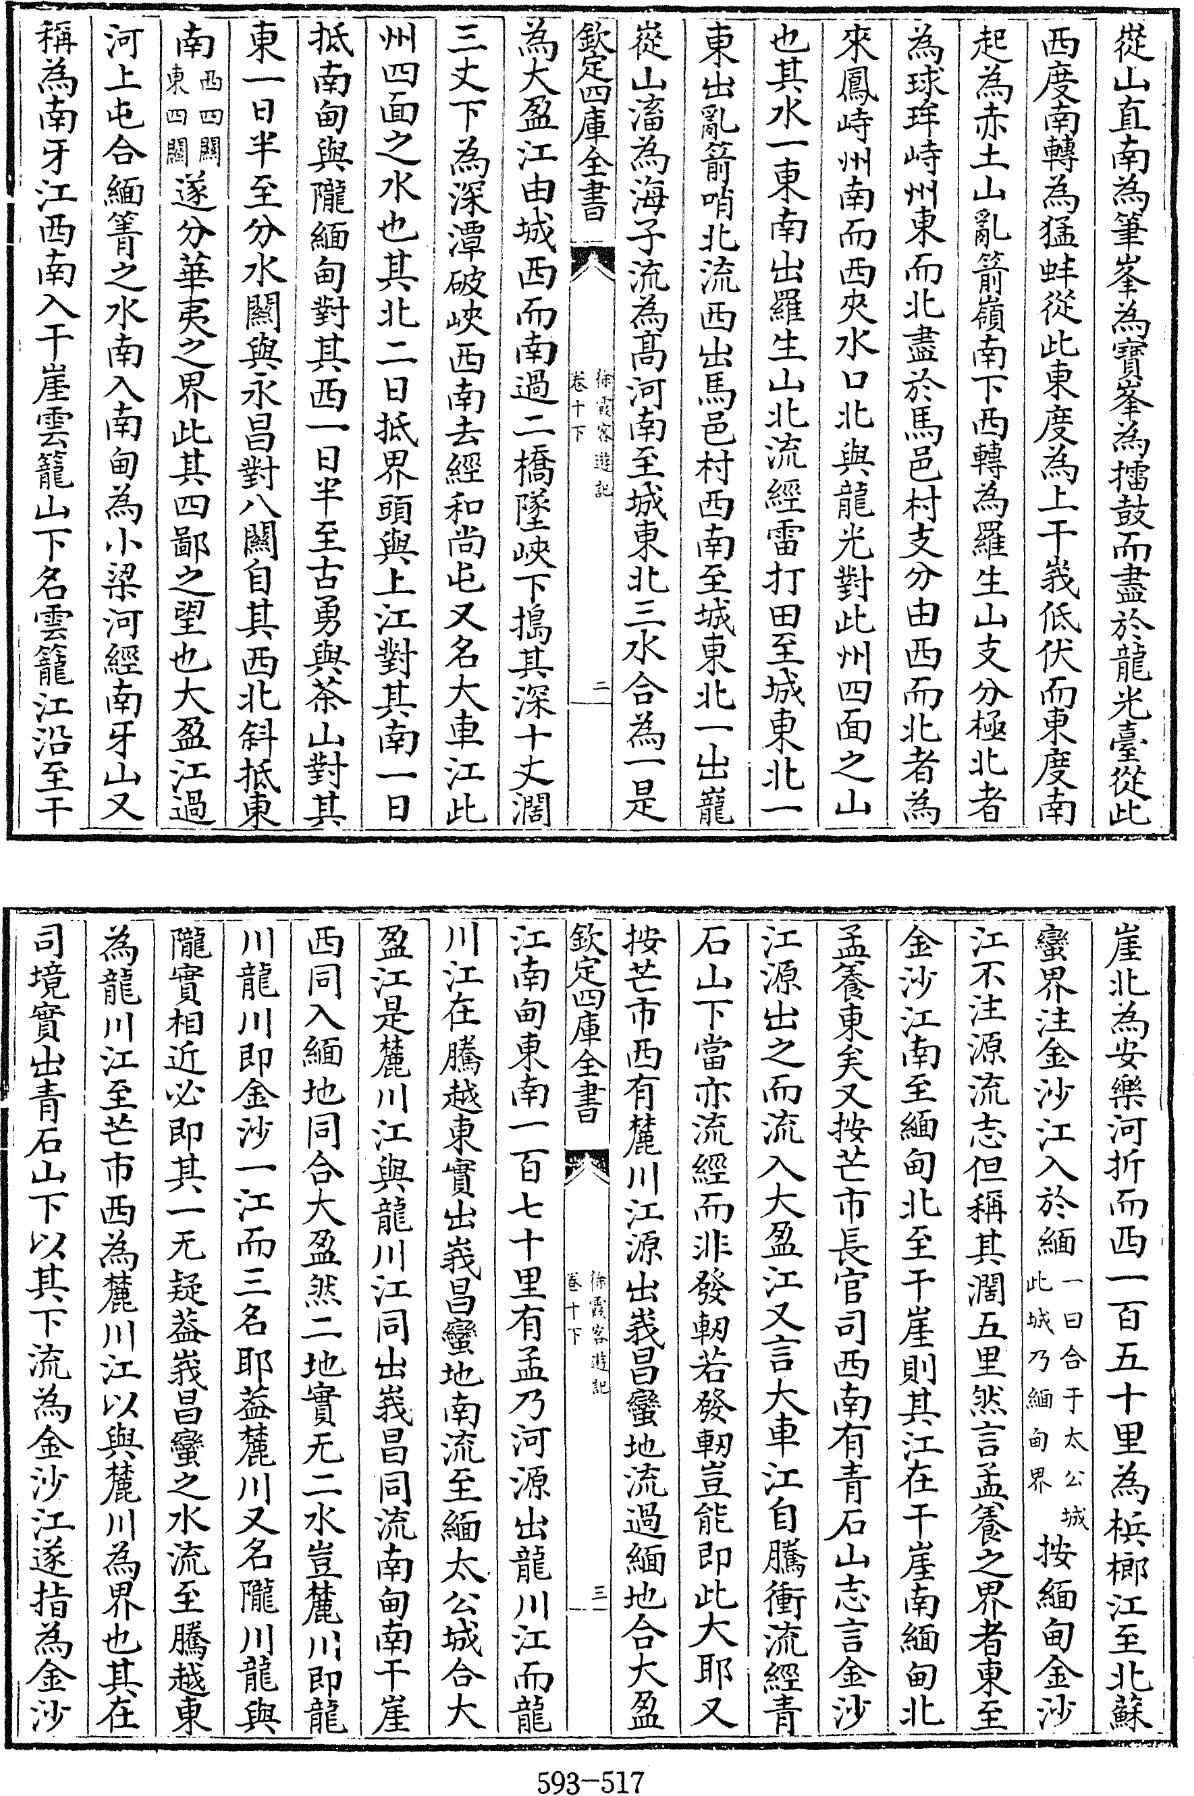 嵸山直南為筆峯為寶峯為擂鼓而盡於龍光臺從此
西度南轉為猛蚌從此東度為上干峩低伏而東度南
起為赤土山亂箭嶺南下西轉為羅生山支分極北者
為球㻉峙州東而北盡於馬邑村支分由西而北者為
來鳳峙州南而西夾水口北與龍光對此州四面之山
也其水一東南出羅生山北流經雷打田至城東北一
東出亂箭哨北流西出馬邑村西南至城東北一出巃
嵸山滀為海子流為髙河南至城東北三水合為一是
欽定四庫全書
徐霞客遊記
卷十下
二
為大盈江由城西而南過二橋墜峽下搗其深十丈濶
三丈下為深潭破峽西南去經和尚屯又名大車江此
州四面之水也其北二日抵界頭與上江對其南一日
抵南甸與隴緬甸對其西一日半至古勇與茶山對其
東一日半至分水闗與永昌對八闗自其西北斜抵東
南西四闗東四闗遂分華夷之界此其四鄙之望也大盈江過
河上屯合緬箐之水南入南甸為小梁河經南牙山又
稱為南牙江西南入干崖雲籠山下名雲籠江沿至干
崖北為安樂河折而西一百五十里為檳榔江至北蘇
蠻界注金沙江入於緬一曰合于太公城此城乃緬甸界按緬甸金沙
江不注源流志但稱其濶五里然言孟養之界者東至
金沙江南至緬甸北至干崖則其江在干崖南緬甸北
孟養東矣又按芒市長官司西南有青石山志言金沙
江源出之而流入大盈江又言大車江自騰衝流經青
石山下當亦流經而非發軔若發軔豈能即此大耶又
按芒市西有麓川江源出峩昌蠻地流過緬地合大盈
欽定四庫全書
徐霞客遊記
卷十下
三
江南甸東南一百七十里有孟乃河源出龍川江而龍
川江在騰越東實出峩昌蠻地南流至緬太公城合大
盈江是麓川江與龍川江同出峩昌同流南甸南干崖
西同入緬地同合大盈然二地實无二水豈麓川即龍
川龍川即金沙一江而三名耶葢麓川又名隴川龍與
隴實相近必即其一无疑葢峩昌蠻之水流至騰越東
為龍川江至芒市西為麓川江以與麓川為界也其在
司境實出青石山下以其下流為金沙江遂指為金沙
593-517